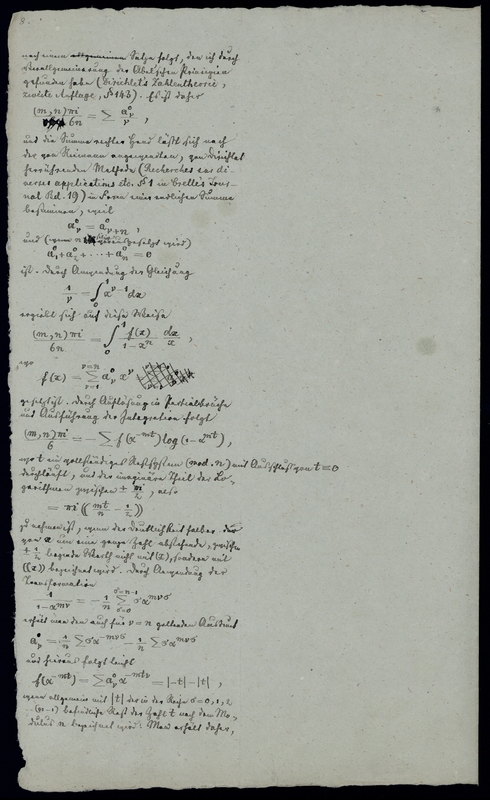 9.
nach einem allgemeinen Satze folgt, den ich durch
Verallgemeinerung der Abelschen Principien
gefunden habe (Dirichlet's Zahlentheorie,
zweite Auflage, § 143). Es ist daher
(m, n) πi / 6n = ∑ a°_ν / ν ,
und die Summe rechter Hand läßt sich nach
der von Riemann angewendeten, von Dirichlet
herrührenden Methode (Recherches sur di-
verses applications etc. § 1 in Crelle's Jour-
nal Bd. 19) in Form einer endlichen Summe
bestimmen, weil
a°_ν = a°_{ν+n} ,
und (wenn n gesetzt wird)
a°_1 + a°_2 + ··· + a°_n = 0
ist. Durch Anwendung der Gleichung
1/ν = ∫_0^1 x^{ν-1} dx
ergiebt sich auf diese Weise
(m, n) πi / 6n = ∫_0^1 f(x) / (1 - x^n) dx/x ,
wo
f(x) = ∑_{ν=1}^{ν=n} a°_ν x^ν
gesetzt ist. Durch Auflösung in Partialbrüche
und Ausführung der Integration folgt
(m, n) πi / 6 = - ∑ f(α^{-mt}) log (1 - α^{mt}) ,
wo t ein vollständiges Restsystem (mod. n) mit Ausschluß von t = 0
durchläuft, und der imaginäre Theil der Lo-
garithmen zwischen ± πi/2 , also
= πi ((mt/n - 1/2))
zu nehmen ist, wenn der Deutlichkeit halber der
von x um eine ganze Zahl abstehende, zwischen
± 1/2 liegende Werth nicht mit (x), sondern mit
((x)) bezeichnet wird. Durch Anwendung der
Transformation
1 / (1 - α^{mν}) = - 1/n ∑_{σ=0}^{σ=n-1} σ α^{mνσ}
erhält man den auch für ν = n geltenden Ausdruck
a°_ν = 1/n ∑ σ α^{-mνσ} - 1/n ∑ σ α^{mνσ}
und hieraus folgt leicht
f(α^{-mt}) = ∑ a°_ν α^{-mtν} = |-t| - |t| ,
wenn allgemein mit |t| der in der Reihe σ = 0, 1, 2
.. (n-1) befindliche Rest der Zahl t nach dem Mo-
dulus n bezeichnet wird. Man erhält daher,